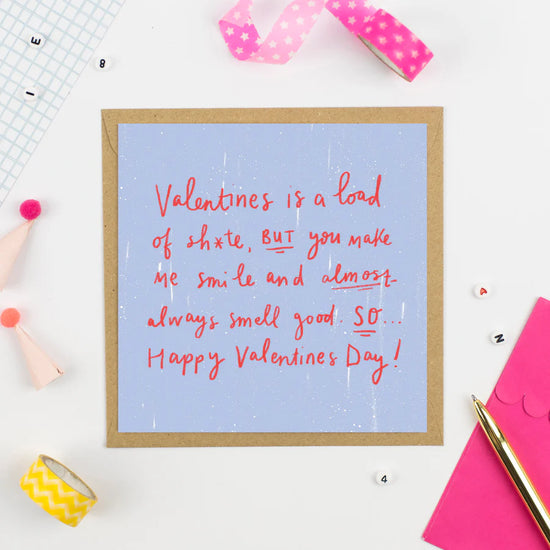 E
8
1
Valentines is a load
of sh*te, BUT you make
me smile and almost
always smell good. SO...
Happy Valentines Day!
4
N
4